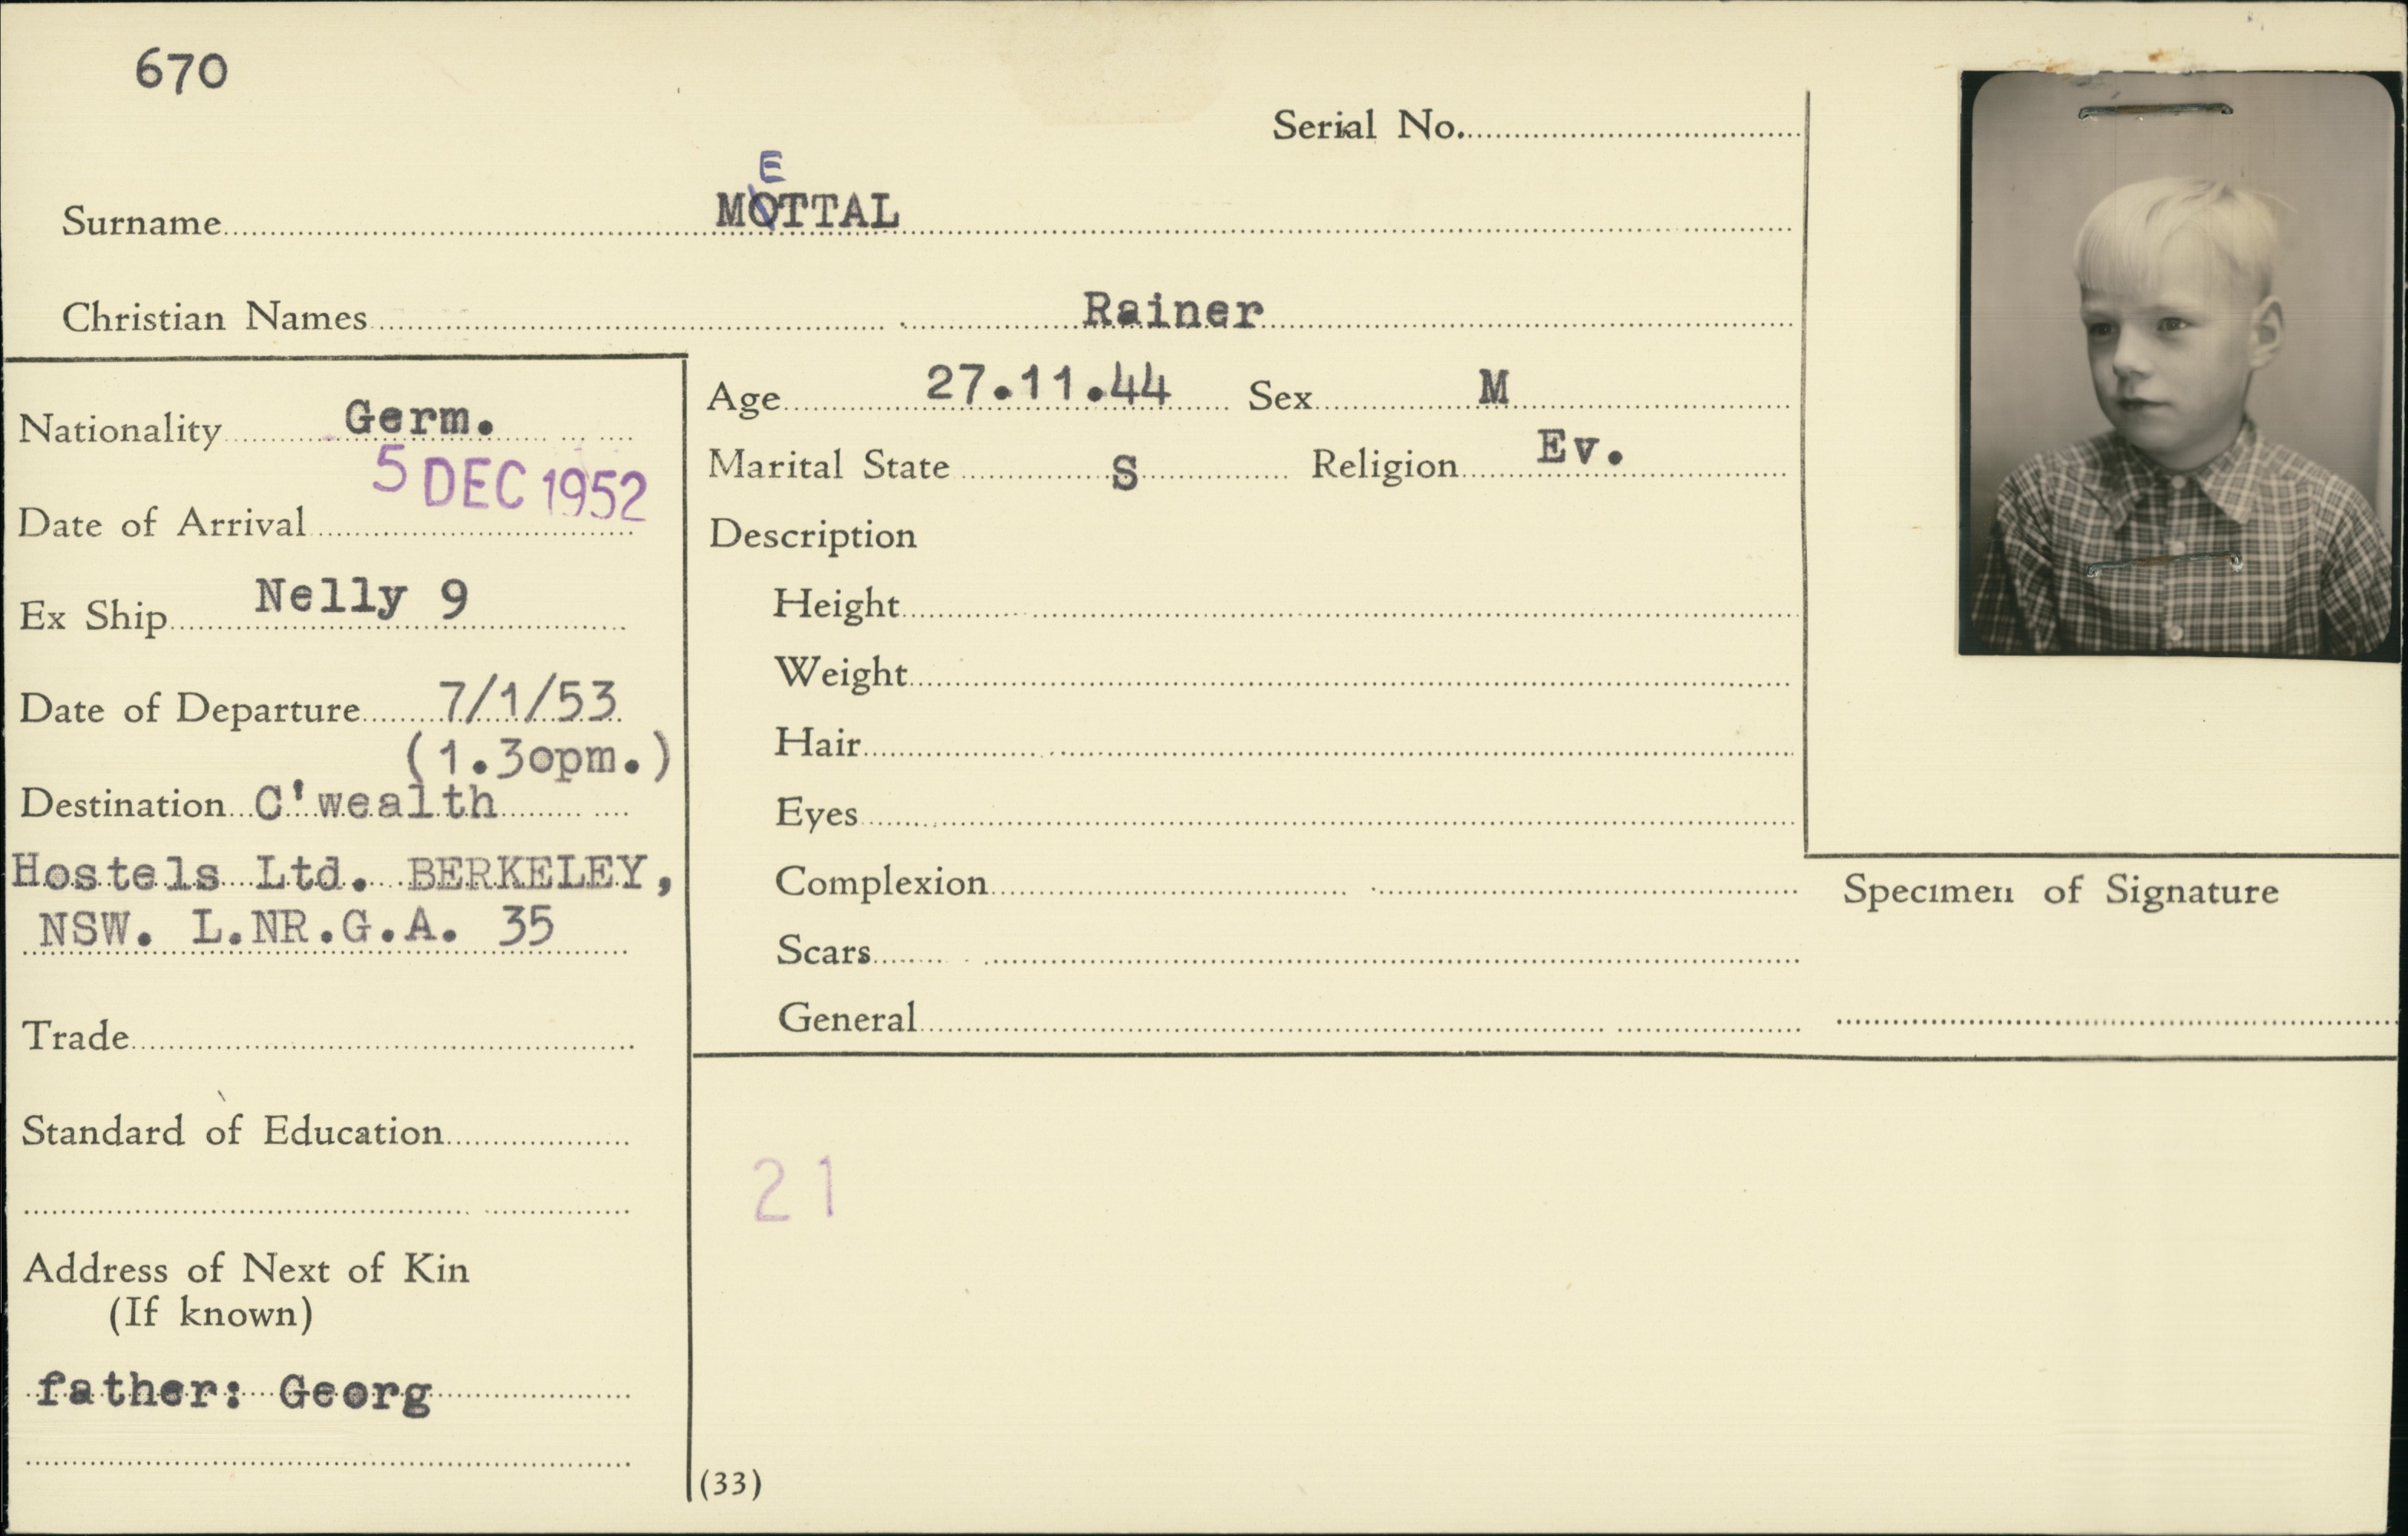 670
Serial No.
E
Surname MOTTAL
Christian Names Rainer
Nationality Germ.
5 DEC 1952
Date of Arrival
Ex Ship Nelly 9
Date of Departure 7/1/53
(1.3opm.)
Destination C'wealth
Hostels Ltd. BERKELEY,
NSW. L.NR.G.A. 35
Trade
Standard of Education
Address of Next of Kin
(If known)
father: Georg
Age 27.11.44 Sex M
Marital State S Religion Ev.
Description
Height
Weight
Hair
Eyes
Complexion
Scars
General
Specimen of Signature
21
(33)